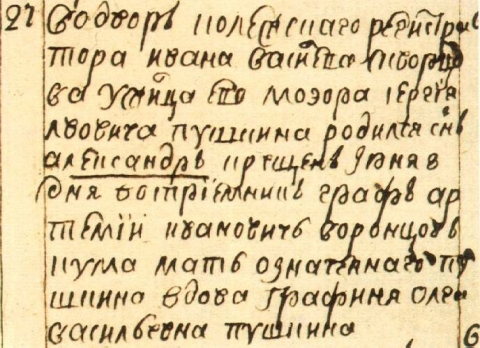 27 Во дворѣ колежскаго регистра
тора ивана василева скворцо
ва у жилца ево моэора сергея
лвовича пушкина родился снъ
александръ крещенъ июня 8
дня восприемникъ графъ ар
темiй ивановичь воронцовъ
кума мать означеннаго пу
шкина вдова графиня олга
васильевна пушкина
6